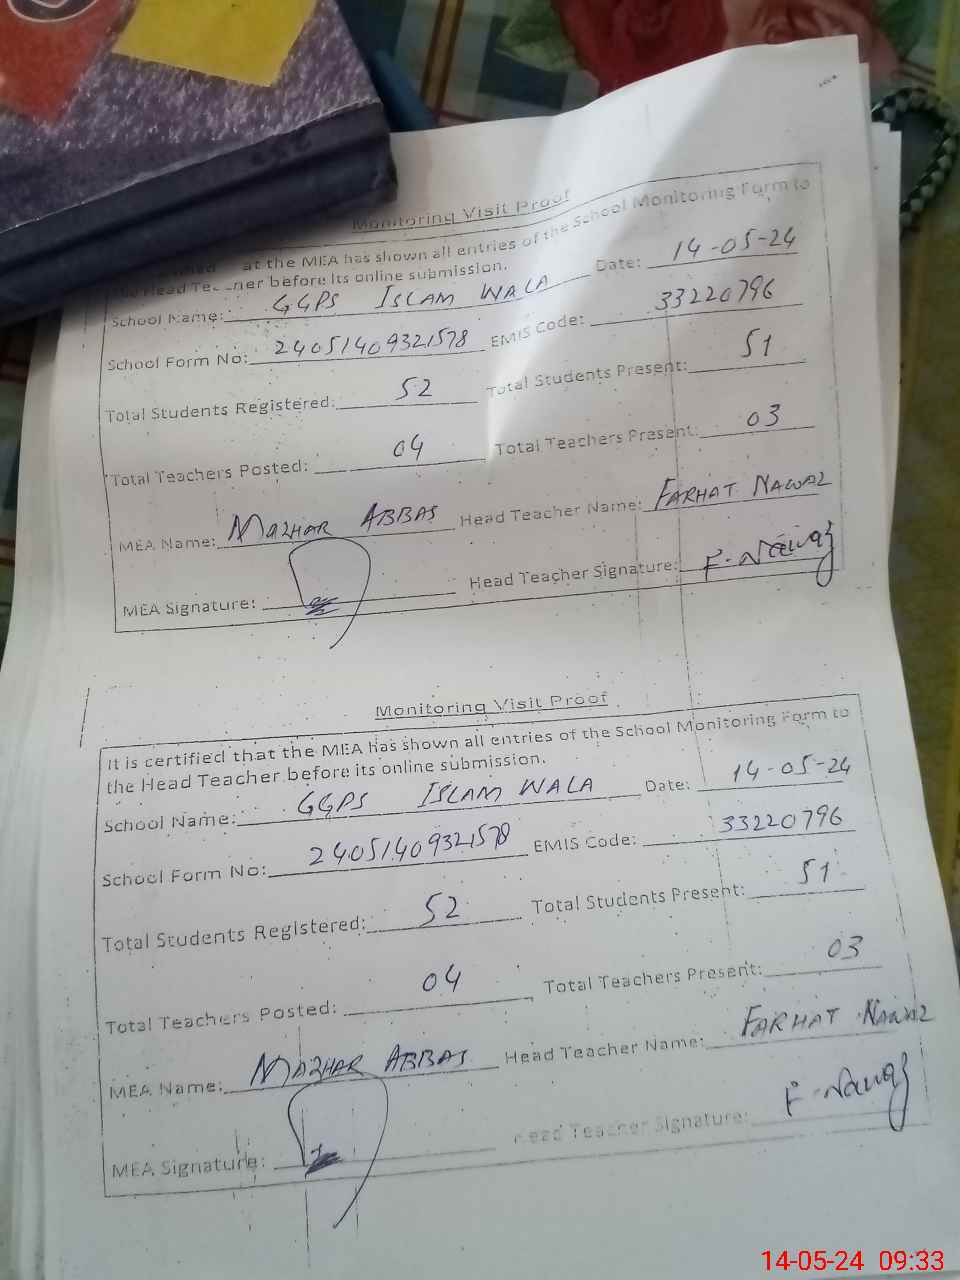 Monitoring Visit Proof
at the MEA has shown all entries of the School Monitoring Form to
the Head Teacher before its online submission.
School Name: GGPS ISLAM WALA Date: 14-05-24
School Form No: 24051409321578 EMIS Code: 33220796
Total Students Registered: 52 Total Students Present: 51
Total Teachers Posted: 04 Total Teachers Present: 03
MEA Name: MAZHAR ABBAS Head Teacher Name: FARHAT NAWAZ
MEA Signature: Head Teacher Signature: F. Nawaz
Monitoring Visit Proof
It is certified that the MEA has shown all entries of the School Monitoring Form to
the Head Teacher before its online submission.
School Name: GGPS ISLAM WALA Date: 14-05-24
School Form No: 24051409321578 EMIS Code: 33220796
Total Students Registered: 52 Total Students Present: 51
Total Teachers Posted: 04 Total Teachers Present: 03
MEA Name: MAZHAR ABBAS Head Teacher Name: FARHAT NAWAZ
MEA Signature: Head Teacher Signature: F. Nawaz
14-05-24 09:33